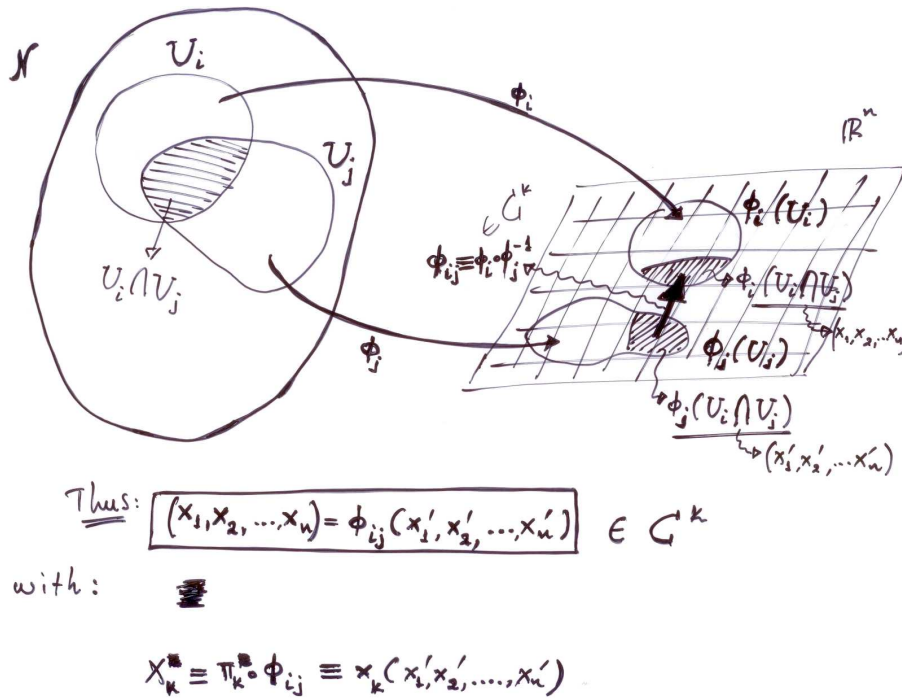 N
U_i
U_j
U_i ∩ U_j
ϕ_i
ϕ_j
ℝ^n
∈ C^k
ϕ_ij ≡ ϕ_i ∘ ϕ_j^-1
ϕ_i(U_i)
ϕ_i(U_i ∩ U_j)
(x_1, x_2, ... x_n)
ϕ_j(U_j)
ϕ_j(U_i ∩ U_j)
(x'_1, x'_2, ... x'_n)
Thus: (x_1, x_2, ..., x_n) = ϕ_ij(x'_1, x'_2, ..., x'_n) ∈ C^k
with:
x_k ≡ π_k ∘ ϕ_ij ≡ x_k(x'_1, x'_2, ...., x'_n)